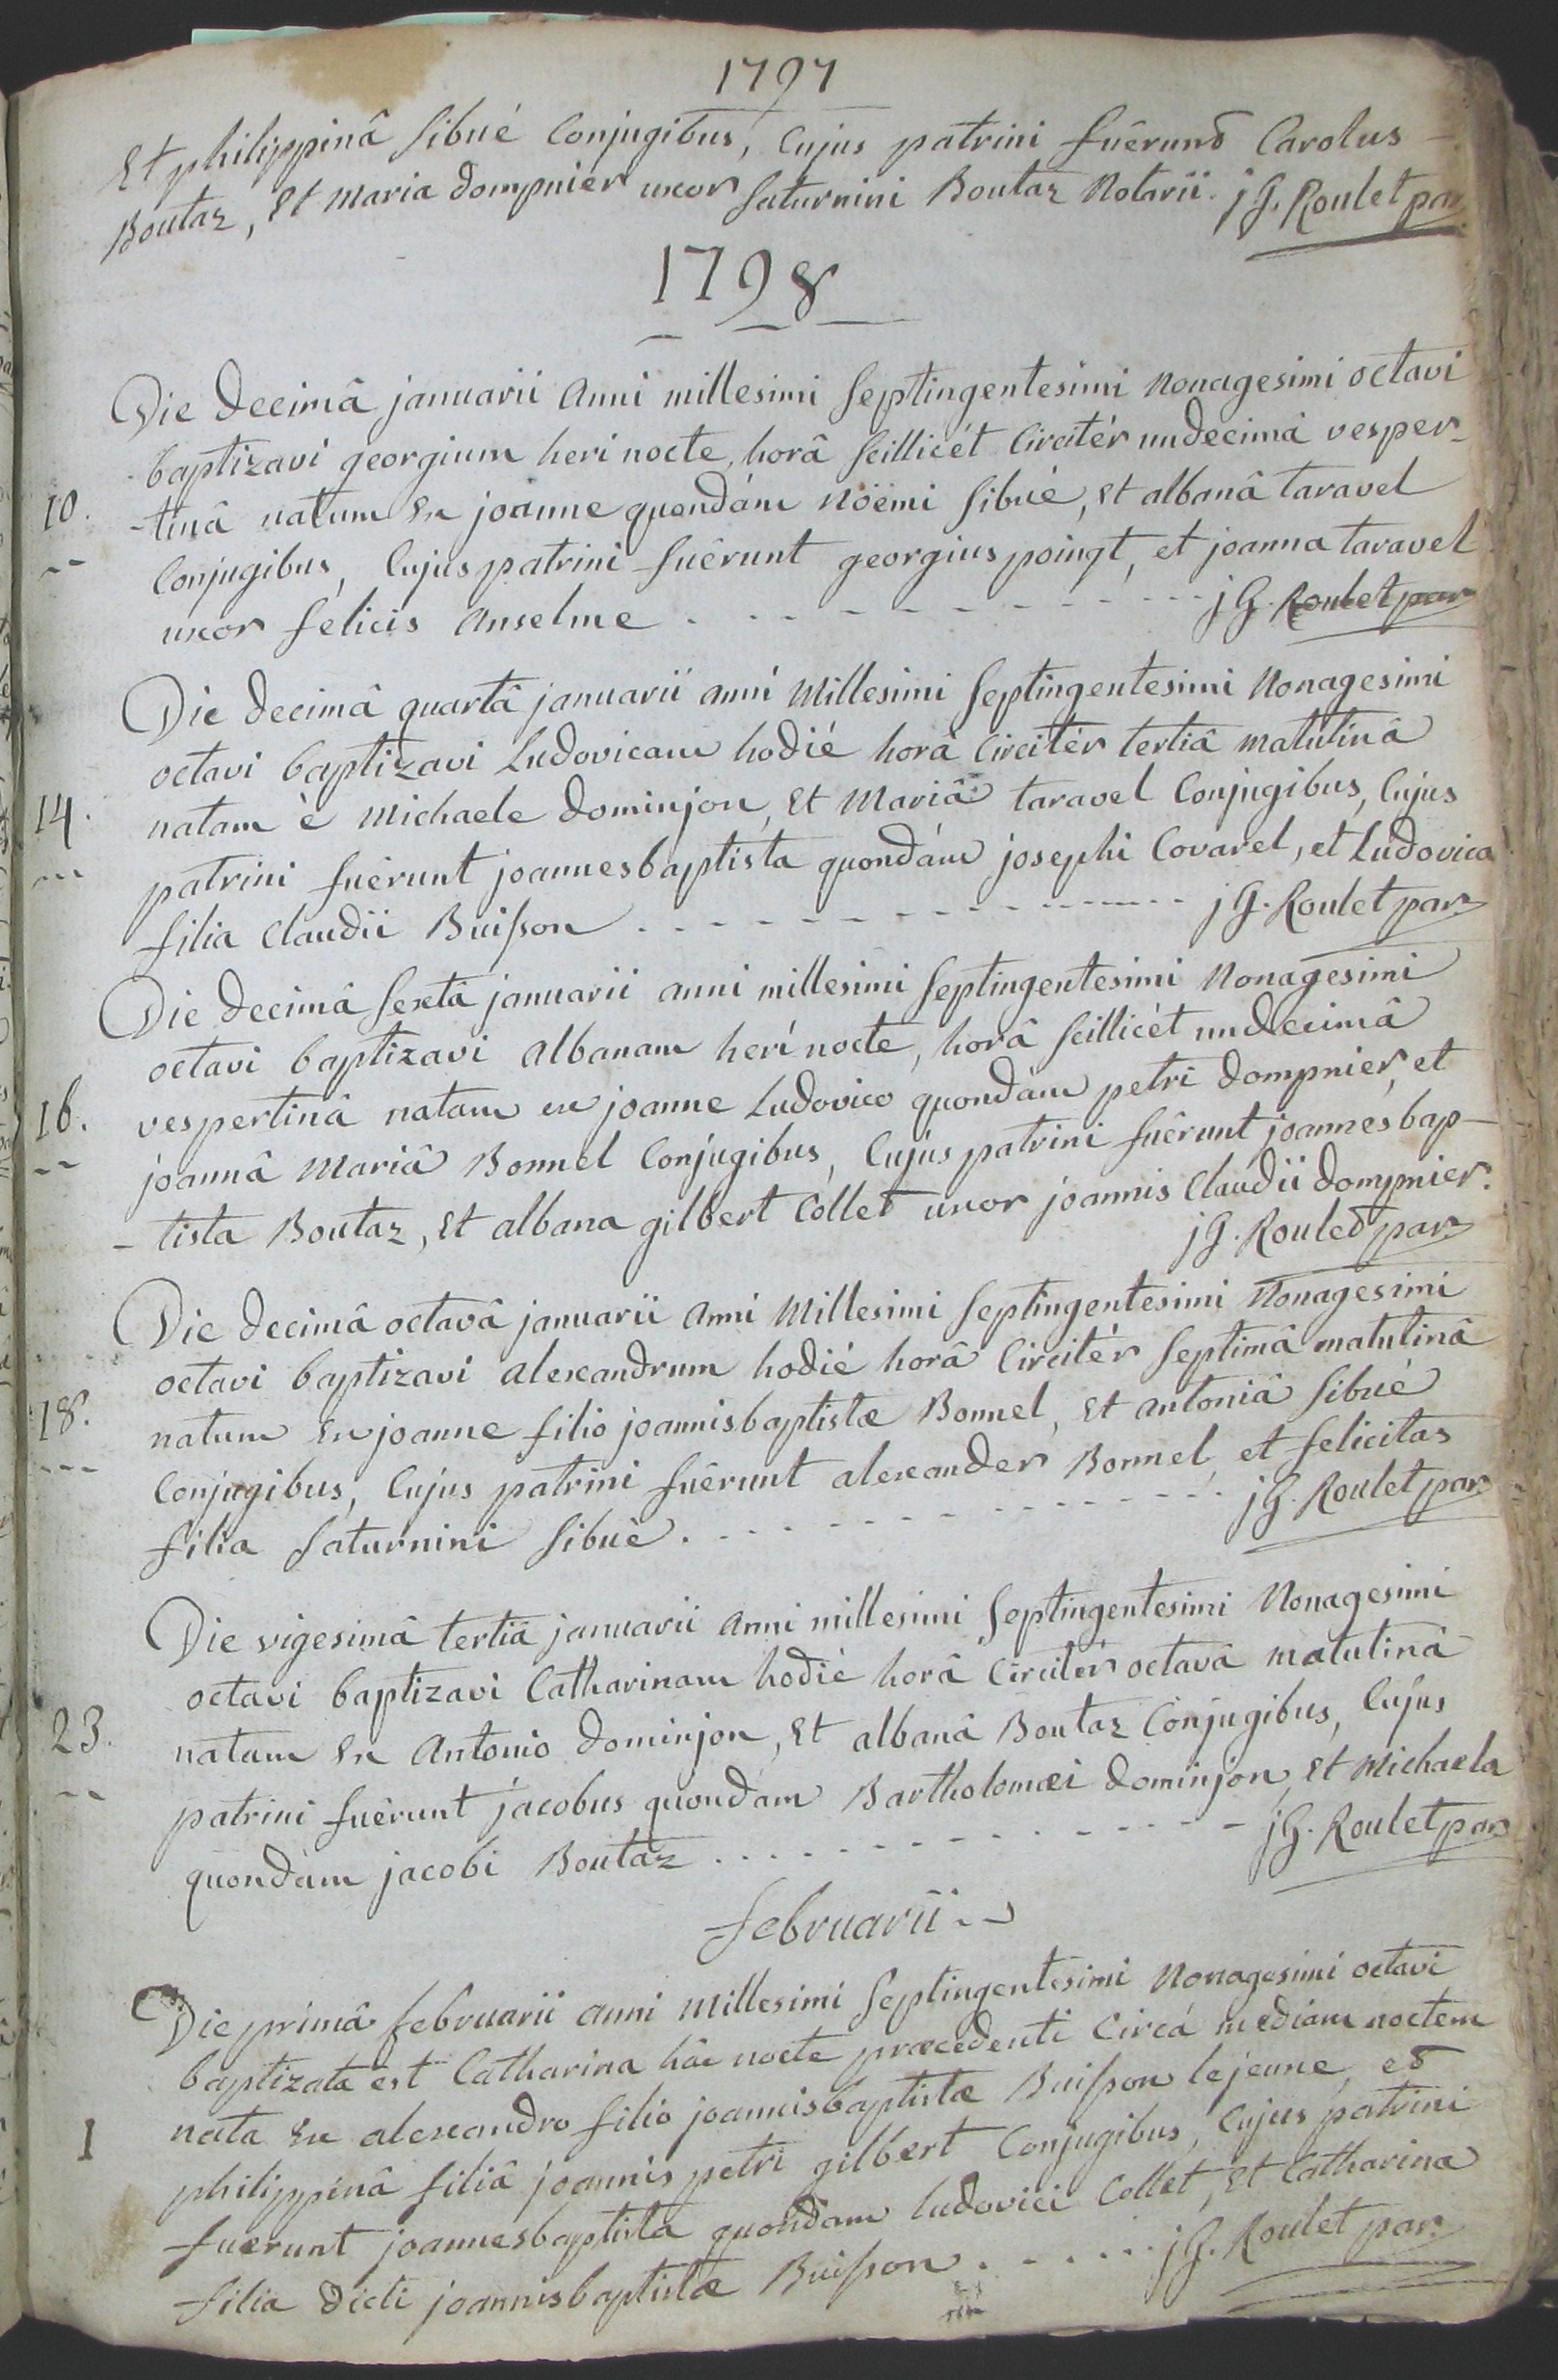 1797
Et philippinâ Sibué Conjugibus, Cujus patrini fuêrunt Carolus —
Boutaz, Et Maria dompnier uxor Saturnini Boutaz Notarii. jG. Roulet par
1798
Die decimâ januarii anni millesimi Septingentesimi Nonagesimi octavi
baptizavi georgium heri nocte, horâ Scillicét Circitér undecimâ vesper-
10. -tinâ natum Ex joanne quondám Nöemi Sibué, Et albanâ taravel
Conjugibus, Cujus patrini fuêrunt georgius poingt, et joanna taravel
uxor felicis Anselme . . . - - - - - - - - - jG. Roulet par
Die decimâ quartâ januarii anni Millesimi Septingentesimi Nonagesimi
octavi baptizavi Ludovicam hodié horâ Circitér tertiâ matutinâ
14. natam è Michaele dominjon, Et Mariâ taravel Conjugibus, Cujus
patrini fuêrunt joannesbaptista quondám josephi Covarel, et Ludovica
filia Claudii Buisson . - - - - - - - - - - - jG. Roulet par
Die decimâ Sextâ januarii anni millesimi Septingentesimi Nonagesimi
octavi baptizavi albanam herí nocte, horâ Scillicét undecimâ
16. vespertinâ natam ex joanne Ludovico quondám petri dompnier, et
joannâ Mariâ Bonnel Conjugibus, Cujus patrini fuêrunt joannésbap-
-tista Boutaz, Et albana gilbert Collet uxor joannis Claudii dompnier.
jG. Roulet par
Die decimâ octavâ januarii anni Millesimi Septingentesimi Nonagesimi
octavi baptizavi alexandrum hodié horâ Circitér Septimâ matutinâ
18. natum Ex joanne filio joannisbaptistæ Bonnel, Et antoniâ Sibué
Conjugibus, Cujus patrini fuêrunt alexander Bonnel, et felicitas
filia Saturnini Sibué . - - - - - - - - - - jG. Roulet par
Die vigesimâ tertiâ januarii anni millesimi Septingentesimi Nonagesimi
octavi baptizavi Catharinam hodié horâ Circitér octavâ matutinâ
23. natam Ex Antonio dominjon, Et albanâ Boutaz Conjugibus, Cujus
patrini fuêrunt jacobus quondám Bartholomæi dominjon, Et Michaela
quondám jacobi Boutaz . . . . - - - - - - - - jG. Roulet par
februarii
Die primâ februarii anni Millesimi Septingentesimi Nonagesimi octavi
baptizata est Catharina hâc nocte præcedenti Circá mediam noctem
1 nata Ex alexandro filio joannisbaptistæ Buisson lejeune, et
philippinâ filiâ joannis petri gilbert Conjugibus, Cujus patrini
fuerunt joannesbaptista quondam ludovici Collet, Et Catharina
filia dicti joannisbaptistæ Buisson . - - - - . . jG. Roulet par